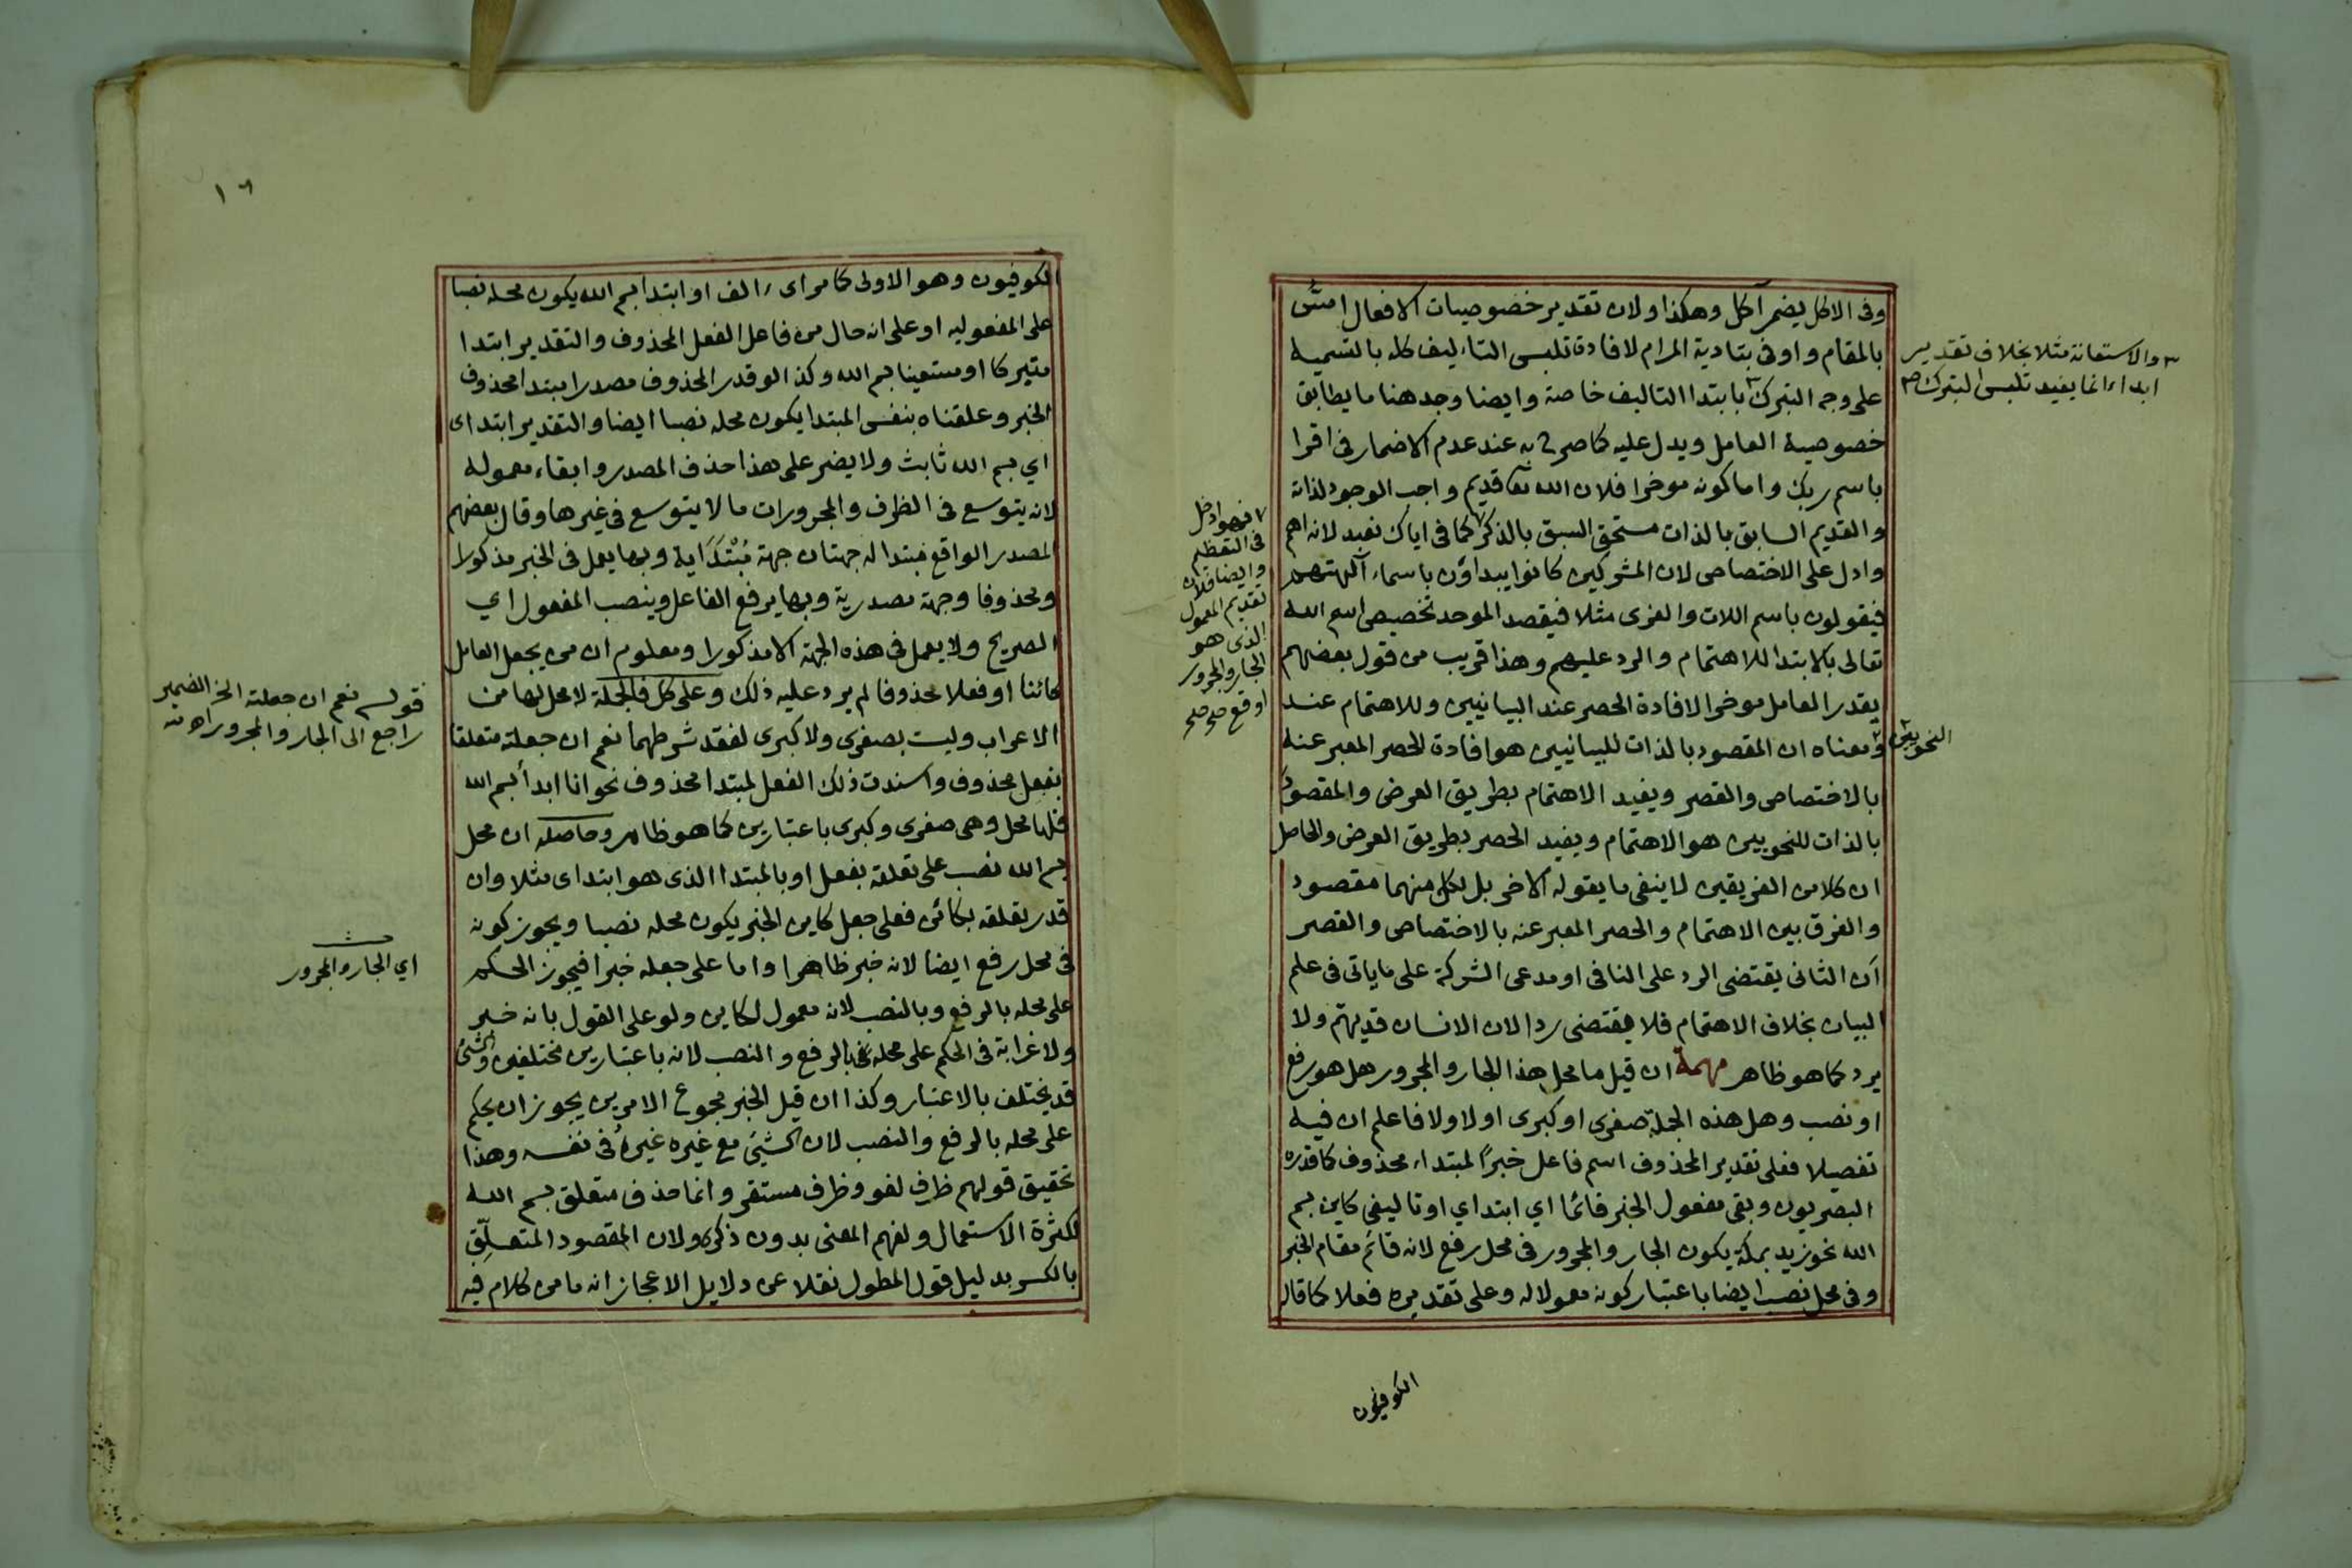 وفى الاكل يضمر آكل وهكذا ولان تقدير خصوصيات الافعال امسّ
بالمقام واوفى بتادية المرام لافادة تلبس التاءليف كله بالتسمية
على وجه التبرك بابتدا التاليف خاصة وايضا وجد هنا ما يطابق
خصوصية العامل ويدل عليه كما صرح به عند عدم الاضمار فى اقرا
باسم ربك واما كونه موخرا فلان الله تعا قديم واجب الوجود لذاته
والقديم السابق بالذات مستحق السبق بالذكر كما فى اياك نعبد لانه اهم
وادل على الاختصاص لان المشركين كانوا يبداؤن باسماء آلهتهم
فيقولون باسم اللات والعزى مثلا فيقصد الموحد تخصيص اسم الله
تعالى بالابتدا للاهتمام والرد عليهم وهذا قريب من قول بعضهم
يقدر العامل موخرا لافادة الحصر عند البيانيين وللاهتمام عند
ومعناه ان المقصود بالذات للبيانيين هو افادة الحصر المعبر عنه
بالاختصاص والقصر ويفيد الاهتمام بطريق العرض والمقصود
بالذات للنحويين هو الاهتمام ويفيد الحصر بطريق العرض والحاصل
ان كلا من الفريقين لا ينفى ما يقوله الاخر بل لكل منهما مقصود
والفرق بين الاهتمام والحصر المعبر عنه بالاختصاص والقصر
ان الثانى يقتضى الرد على النافى او مدعى الشركة على ما ياتى فى علم
البيان بخلاف الاهتمام فلا يقتضى ردا لان الانسان قد يهتم ولا
يرد كما هو ظاهر مهمة ان قيل ما محل هذا الجار والمجرور هل هو رفع
او نصب وهل هذه الجملة صغرى او كبرى اولا ولا فاعلم ان فيه
تفصيلا فعلى تقدير المحذوف اسم فاعل خبرًا لمبتداء محذوف كما قدره
البصريون وبقى مفعول الخبر قائما اي ابتداي او تاليفى كاين بسم
الله نحو زيد بمكة يكون الجار والمجرور فى محل رفع لانه قائم مقام الخبر
وفى محل نصب ايضا باعتبار كونه معمولا له وعلى تقديره فعلا كما قال
الكوفيون
والاستعانة مثلا بخلاف تقدير
ابداء انما يفيد تلبس التبرك صح
النحويين
فهو ادخل
فى التعظيم
وايضا فلان
تقديم المعمول
الذى هو
الجار والمجرور
اوقع صح صح
١٦
الكوفيون وهو الاولى كما مر اى الف او ابتدا بسم الله يكون محله نصبا
على المفعوليه او على انه حال من فاعل الفعل المحذوف والتقدير ابتدا
متبركا او مستعينا بسم الله وكذا لو قدر المحذوف مصدرا مبتدا محذوف
الخبر وعلقناه بنفس المبتدا يكون محله نصبا ايضا والتقدير ابتداى
اي بسم الله ثابث ولا يضر على هذا حذف المصدر وابقاء معموله
لانه يتوسع فى الظرف والمجرورات ما لا يتوسع فى غيرها وقال بعضهم
المصدر الواقع مبتدا له جهتان جهة مُبْتَدَاية وبها يعمل فى الخبر مذكورا
ومحذوفا وجهة مصدرية وبها يرفع الفاعل وينصب المفعول اي
الصريح ولا يعمل فى هذه الجهة الا مذكورا ومعلوم ان من يجعل العامل
كائنا او فعلا محذوفا لم يرد عليه ذلك وعلى كل فالجملة لا محل لها من
الاعراب وليت بصغرى ولا كبرى لفقد شرطهما نعم ان جعلته متعلقا
بفعل محذوف واسندت ذلك الفعل لمبتدا محذوف نحو انا ابدأ بسم الله
فلها محل وهى صغرى وكبرى باعتبارين كما هو ظاهر وحاصله ان محل
بسم الله نصب على تعلقه بفعل او بالمبتدا الذى هو ابتداى مثلا وان
قدر تعلقه بكائن فعلى جعل كاين الخبر يكون محله نصبا ويجوز كونه
فى محل رفع ايضا لانه خبر ظاهرا واما على جعله خبرا فيجوز الحكم
على محله بالرفع وبالنصب لانه معمول لكاين ولو على القول بانه خبر
ولا غرابة فى الحكم على محله بالرفع والنصب لانه باعتبارين مختلفين والشئ
قد يختلف بالاعتبار وكذا ان قيل الخبر مجموع الامرين يجوز ان يحكم
على محله بالرفع والنصب لان الشيئ مع غيره غيرهُ فى نفسه وهذا
تحقيق قولهم ظرف لغو وظرف مستقر وانما حذف متعلق بسم الله
لكثرة الاستعمال ولفهم المعنى بدون ذكره ولان المقصود المتعلِّق
بالكسر بدليل قول المطول نقلا عن دلايل الاعجاز انه ما من كلام فيه
قوله نعم ان جعلته الخ الضمير
راجع الى الجار والمجرور اهـ
اي الجار والمجرور